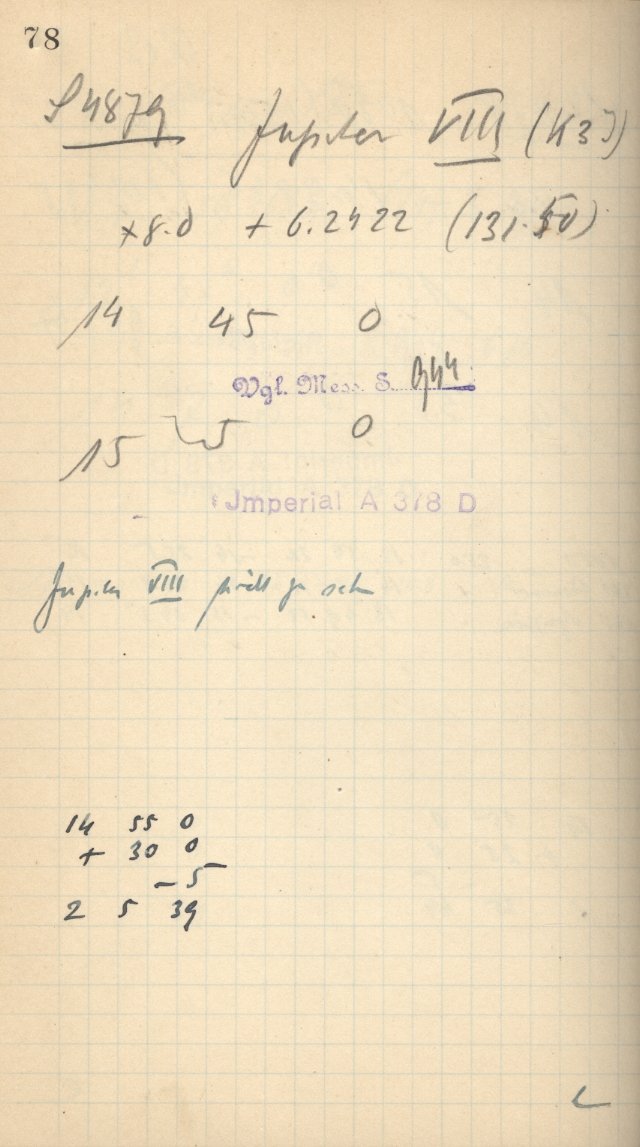 78
S 4879 Jupiter VIII (K3)
+8.0 + 6.2422 (131.50)
14 45 0
Vgl. Mess. S. 944
15 5 0
Jmperial A 378 D
Jupiter VIII
14 55 0
+ 30 0
- 5
2 5 39